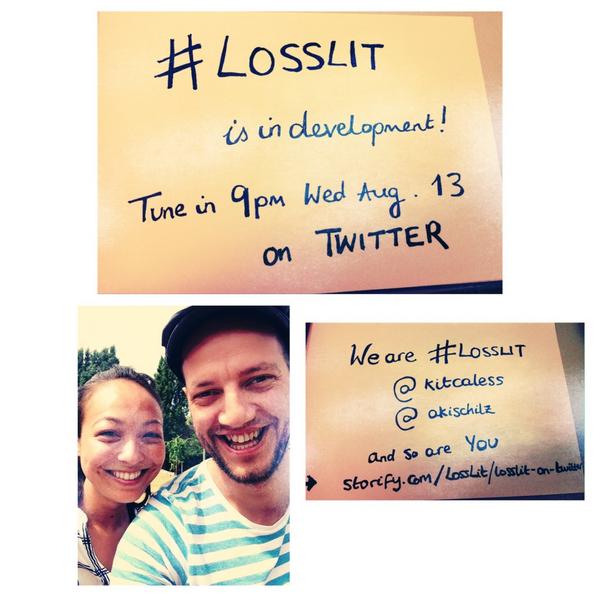 #LOSSLIT
is in development!
Tune in 9pm Wed Aug. 13
on TWITTER
We are #LOSSLIT
@kitcaless
@akischilz
and so are You
storify.com/LossLit/losslit-on-twitter